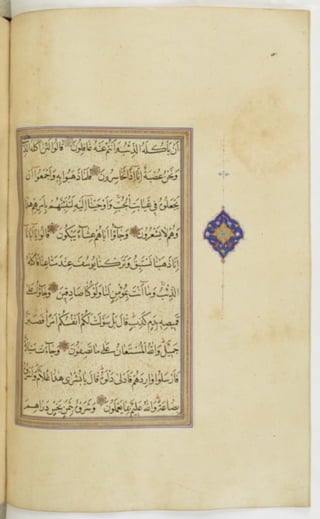 اَنْ يَأْكُلَهُ الذِّئْبُ وَاَنْتُمْ عَنْهُ غَافِلُونَ قَالُوا لَئِنْ اَكَلَهُ الذِّئْبُ
وَنَحْنُ عُصْبَةٌ اِنَّا اِذًا لَخَاسِرُونَ فَلَمَّا ذَهَبُوا بِهِ وَاَجْمَعُوا اَنْ
يَجْعَلُوهُ فِي غَيَابَتِ الْجُبِّ وَاَوْحَيْنَا اِلَيْهِ لَتُنَبِّئَنَّهُمْ بِاَمْرِهِمْ هٰذَا
وَهُمْ لَا يَشْعُرُونَ وَجَاؤُا اَبَاهُمْ عِشَاءً يَبْكُونَ قَالُوا يَا اَبَانَا
اِنَّا ذَهَبْنَا نَسْتَبِقُ وَتَرَكْنَا يُوسُفَ عِنْدَ مَتَاعِنَا فَاَكَلَهُ
الذِّئْبُ وَمَا اَنْتَ بِمُؤْمِنٍ لَنَا وَلَوْ كُنَّا صَادِقِينَ وَجَاؤُا عَلٰى
قَمِيصِهِ بِدَمٍ كَذِبٍ قَالَ بَلْ سَوَّلَتْ لَكُمْ اَنْفُسُكُمْ اَمْرًا فَصَبْرٌ
جَمِيلٌ وَاللّٰهُ الْمُسْتَعَانُ عَلٰى مَا تَصِفُونَ وَجَاءَتْ سَيَّارَةٌ
فَاَرْسَلُوا وَارِدَهُمْ فَاَدْلٰى دَلْوَهُ قَالَ يَا بُشْرٰى هٰذَا غُلَامٌ وَاَسَرُّوهُ
بِضَاعَةً وَاللّٰهُ عَلِيمٌ بِمَا يَعْمَلُونَ وَشَرَوْهُ بِثَمَنٍ بَخْسٍ دَرَاهِمَ